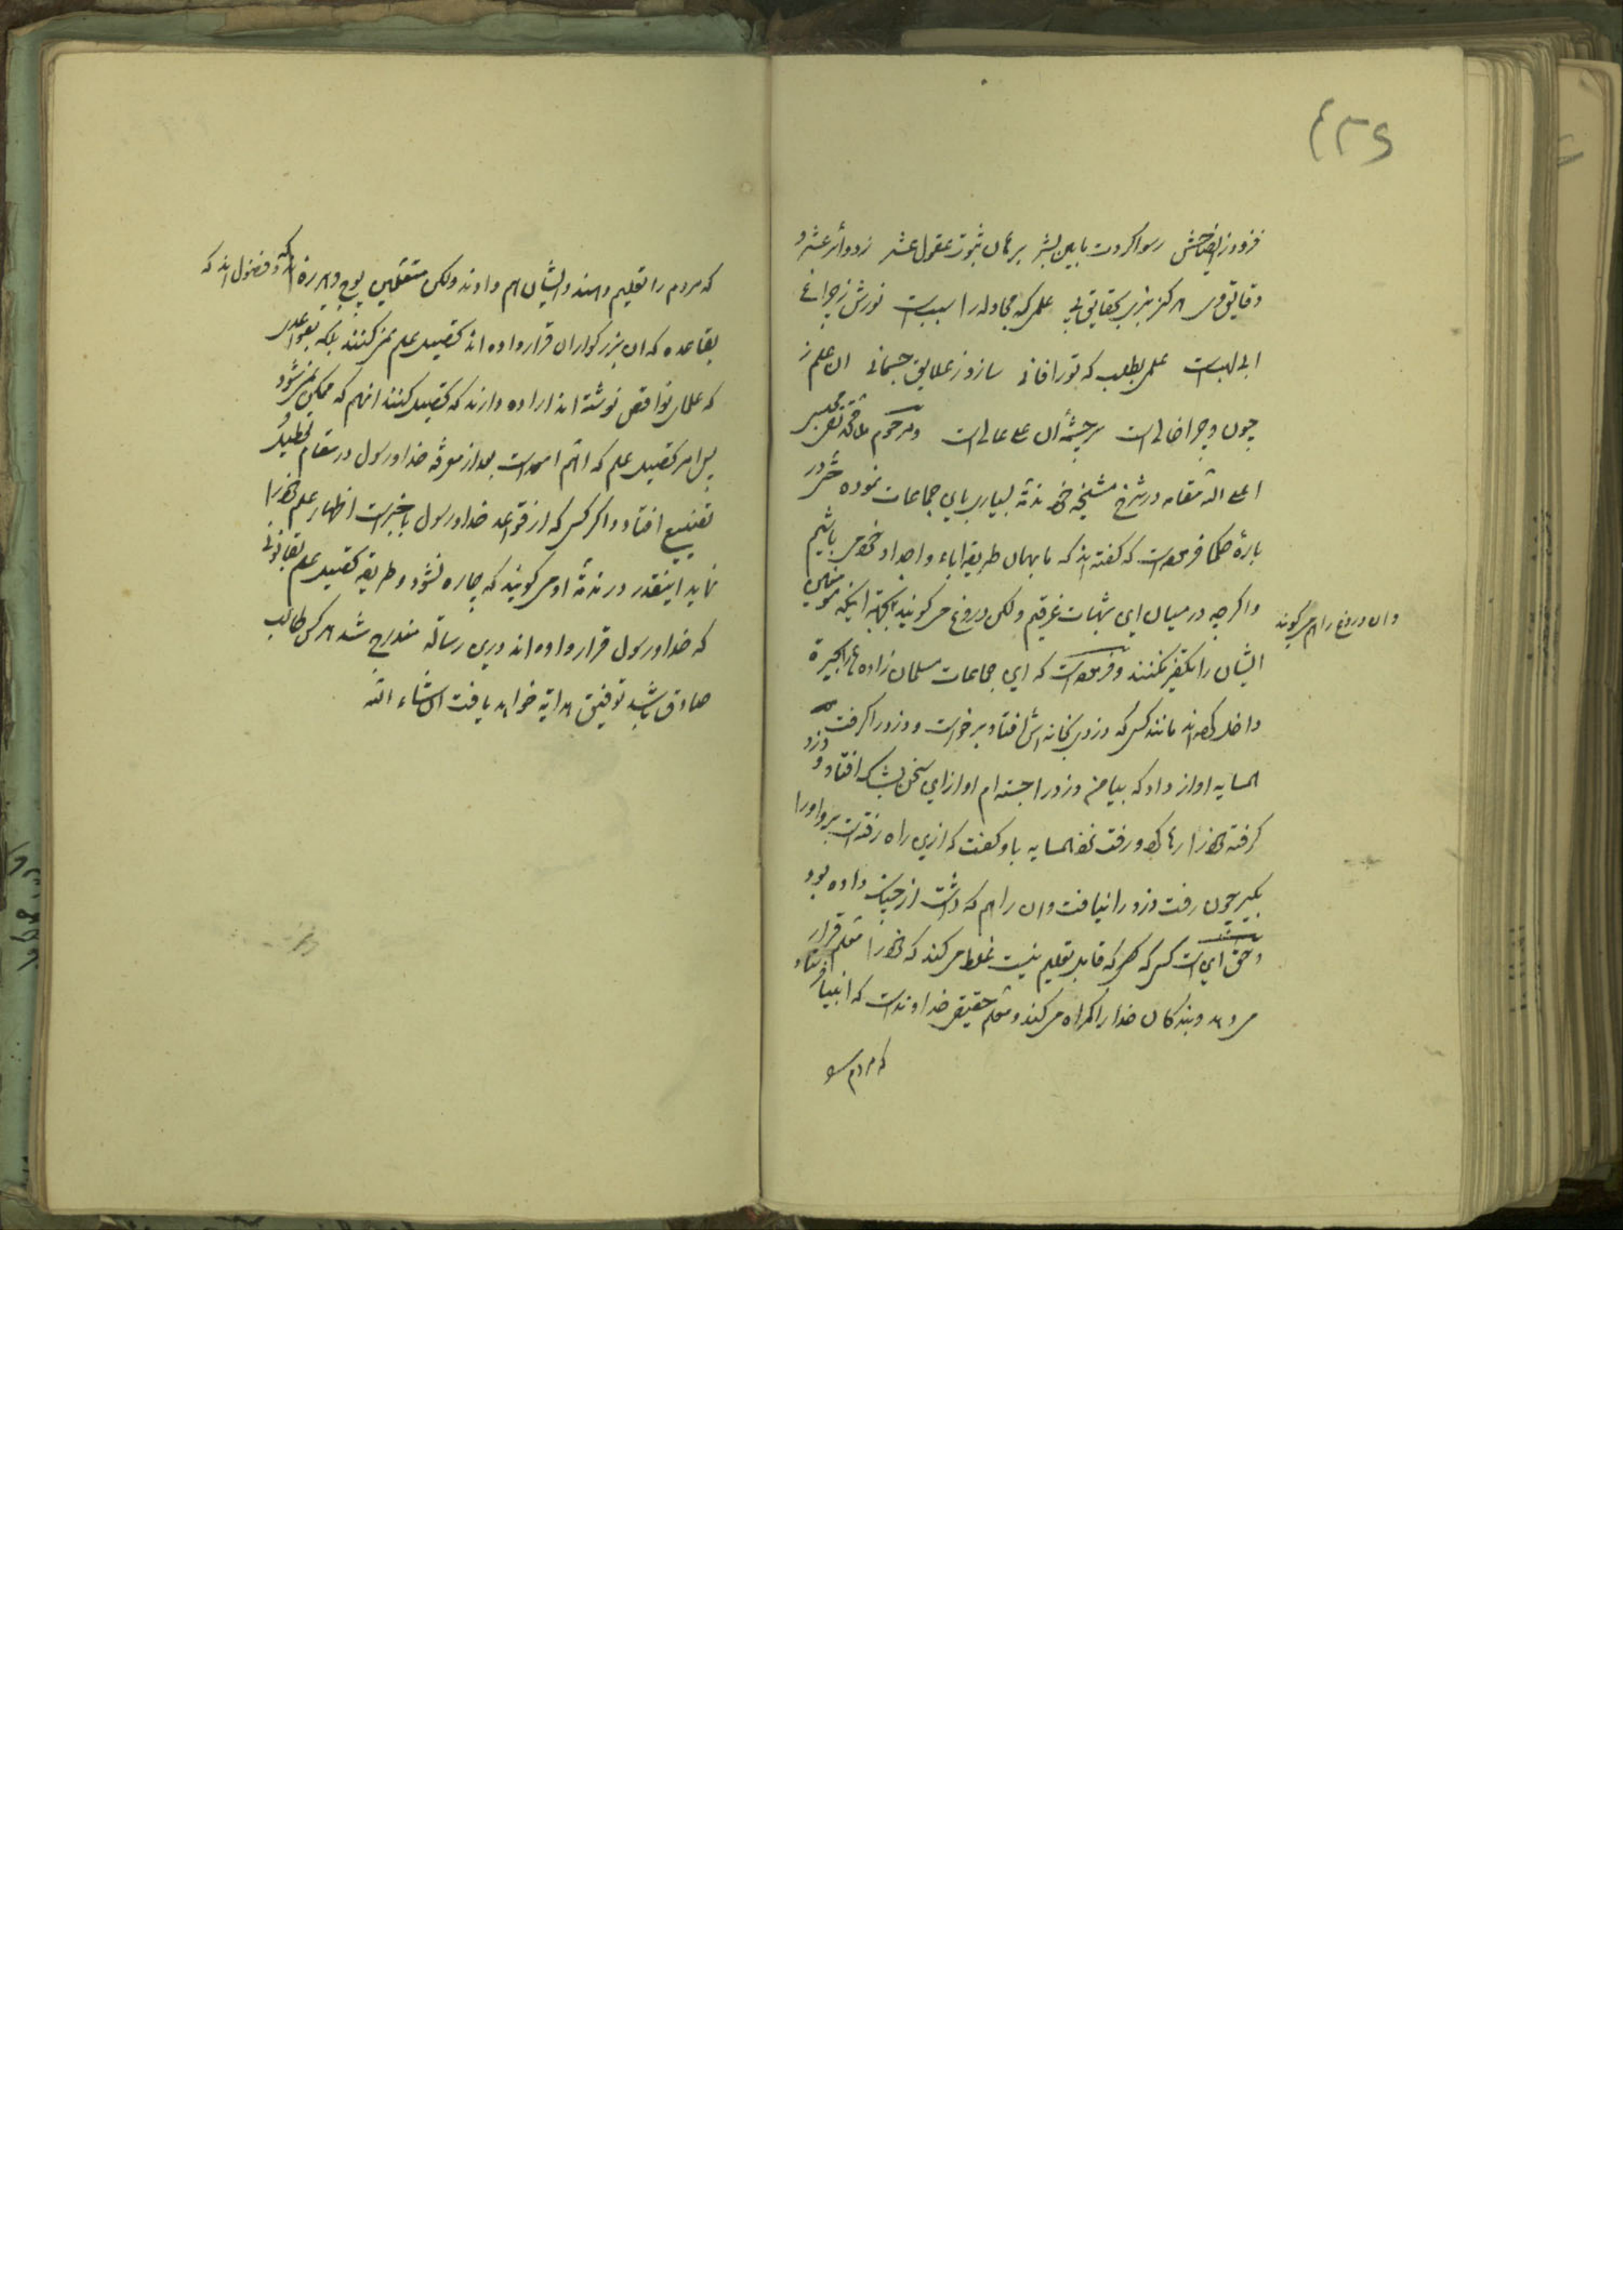 رسوا کردت بابین بشر برهان ثبوت عقول عشر
هرگز نبری بحقایق پی علمی که مجادله را سبب است نورش ز چراغ
ابی لهب است علمی بطلب که تو را فانی سازد ز علایق جسمانی آن علم ز
چون و چرا خالی است سرچشمه آن علی عالی است و مرحوم
اعلی الله مقامه در شرح مشیخه خود مذمة بسیار برای جماعات نموده حتی در
باره حکما فرموده است که گفته اند که ما بهمان طریقه اباء و اجداد خود می باشیم
و اگر چه در میان این شبهات غرقیم ولکن دروغ می گویند بجهة اینکه مؤمنین
و آن دروغ را هم می گویند
ایشان را تکفیر نکنند و فرموده است که این جماعات مسلمان زاده
داخل کرده اند مانند کسی که دزدی بخانه اش افتاد برخواست و دزد را گرفت
همسایه آواز داد که بیا من دزد را جسته ام او از این سخن بشک افتاد و دزد
گرفته خود را رها کرد و رفت نزد همسایه باو گفت که ازین راه رفته است برو او را
بگیر چون رفت دزد را نیافت و آن را هم که داشت از چنگ داده بود
و حق این است کسی که قابل تعلیم نیست غلط می کند که خود را معلم قرار
می دهد و بندگان خدا را گمراه می کند و معلم حقیقی خداوند است که انبیا فرستاد
که مردم را
که مردم را تعلیم دهند و ایشان هم دادند ولکن متعلمین پوچ و هرزه و فضول اند که
بقاعده که آن بزرگواران قرار داده اند تحصیل علم نمی کنند بلکه بقواعدی
که علمای نواقص نوشته اند اراده دارند که تحصیل کنند آنهم که ممکن نمی شود
پس امر تحصیل علم که اهم امور است بعد از معرفة خدا و رسول در مقام تعطیل
تضییع افتاد و اگر کسی که از قواعد خدا و رسول باخبر است اظهار علم خود را
نماید اینقدر در مذمة او می گویند که بیچاره نشود و طریقه تحصیل علم بقانونی
که خدا و رسول قرار داده اند درین رساله مندرج شد هر کس طالب
صادق باشد توفیق هدایة خواهد یافت انشاء الله